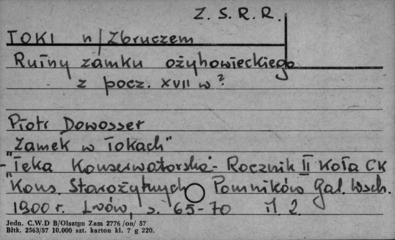 Z. S. R. R.
TOKI n/Zbruczem
Ruiny zamku ożyhowieckiego
z pocz. XVII w ?
Piotr Dowosser
"Zamek w Tokach"
"Teka Konserwatorska - Rocznik II Koła CK
"Kons. Starożytnych Pomników Gal. Wsch.
1900 r. Lwów s. 65-70 il. 2.
Jedn. C.W.D B/Olsztyn Zam 2776 /on/ 57
Błtk. 2563/57 10.000 szt. karton kl. 7 g 220.